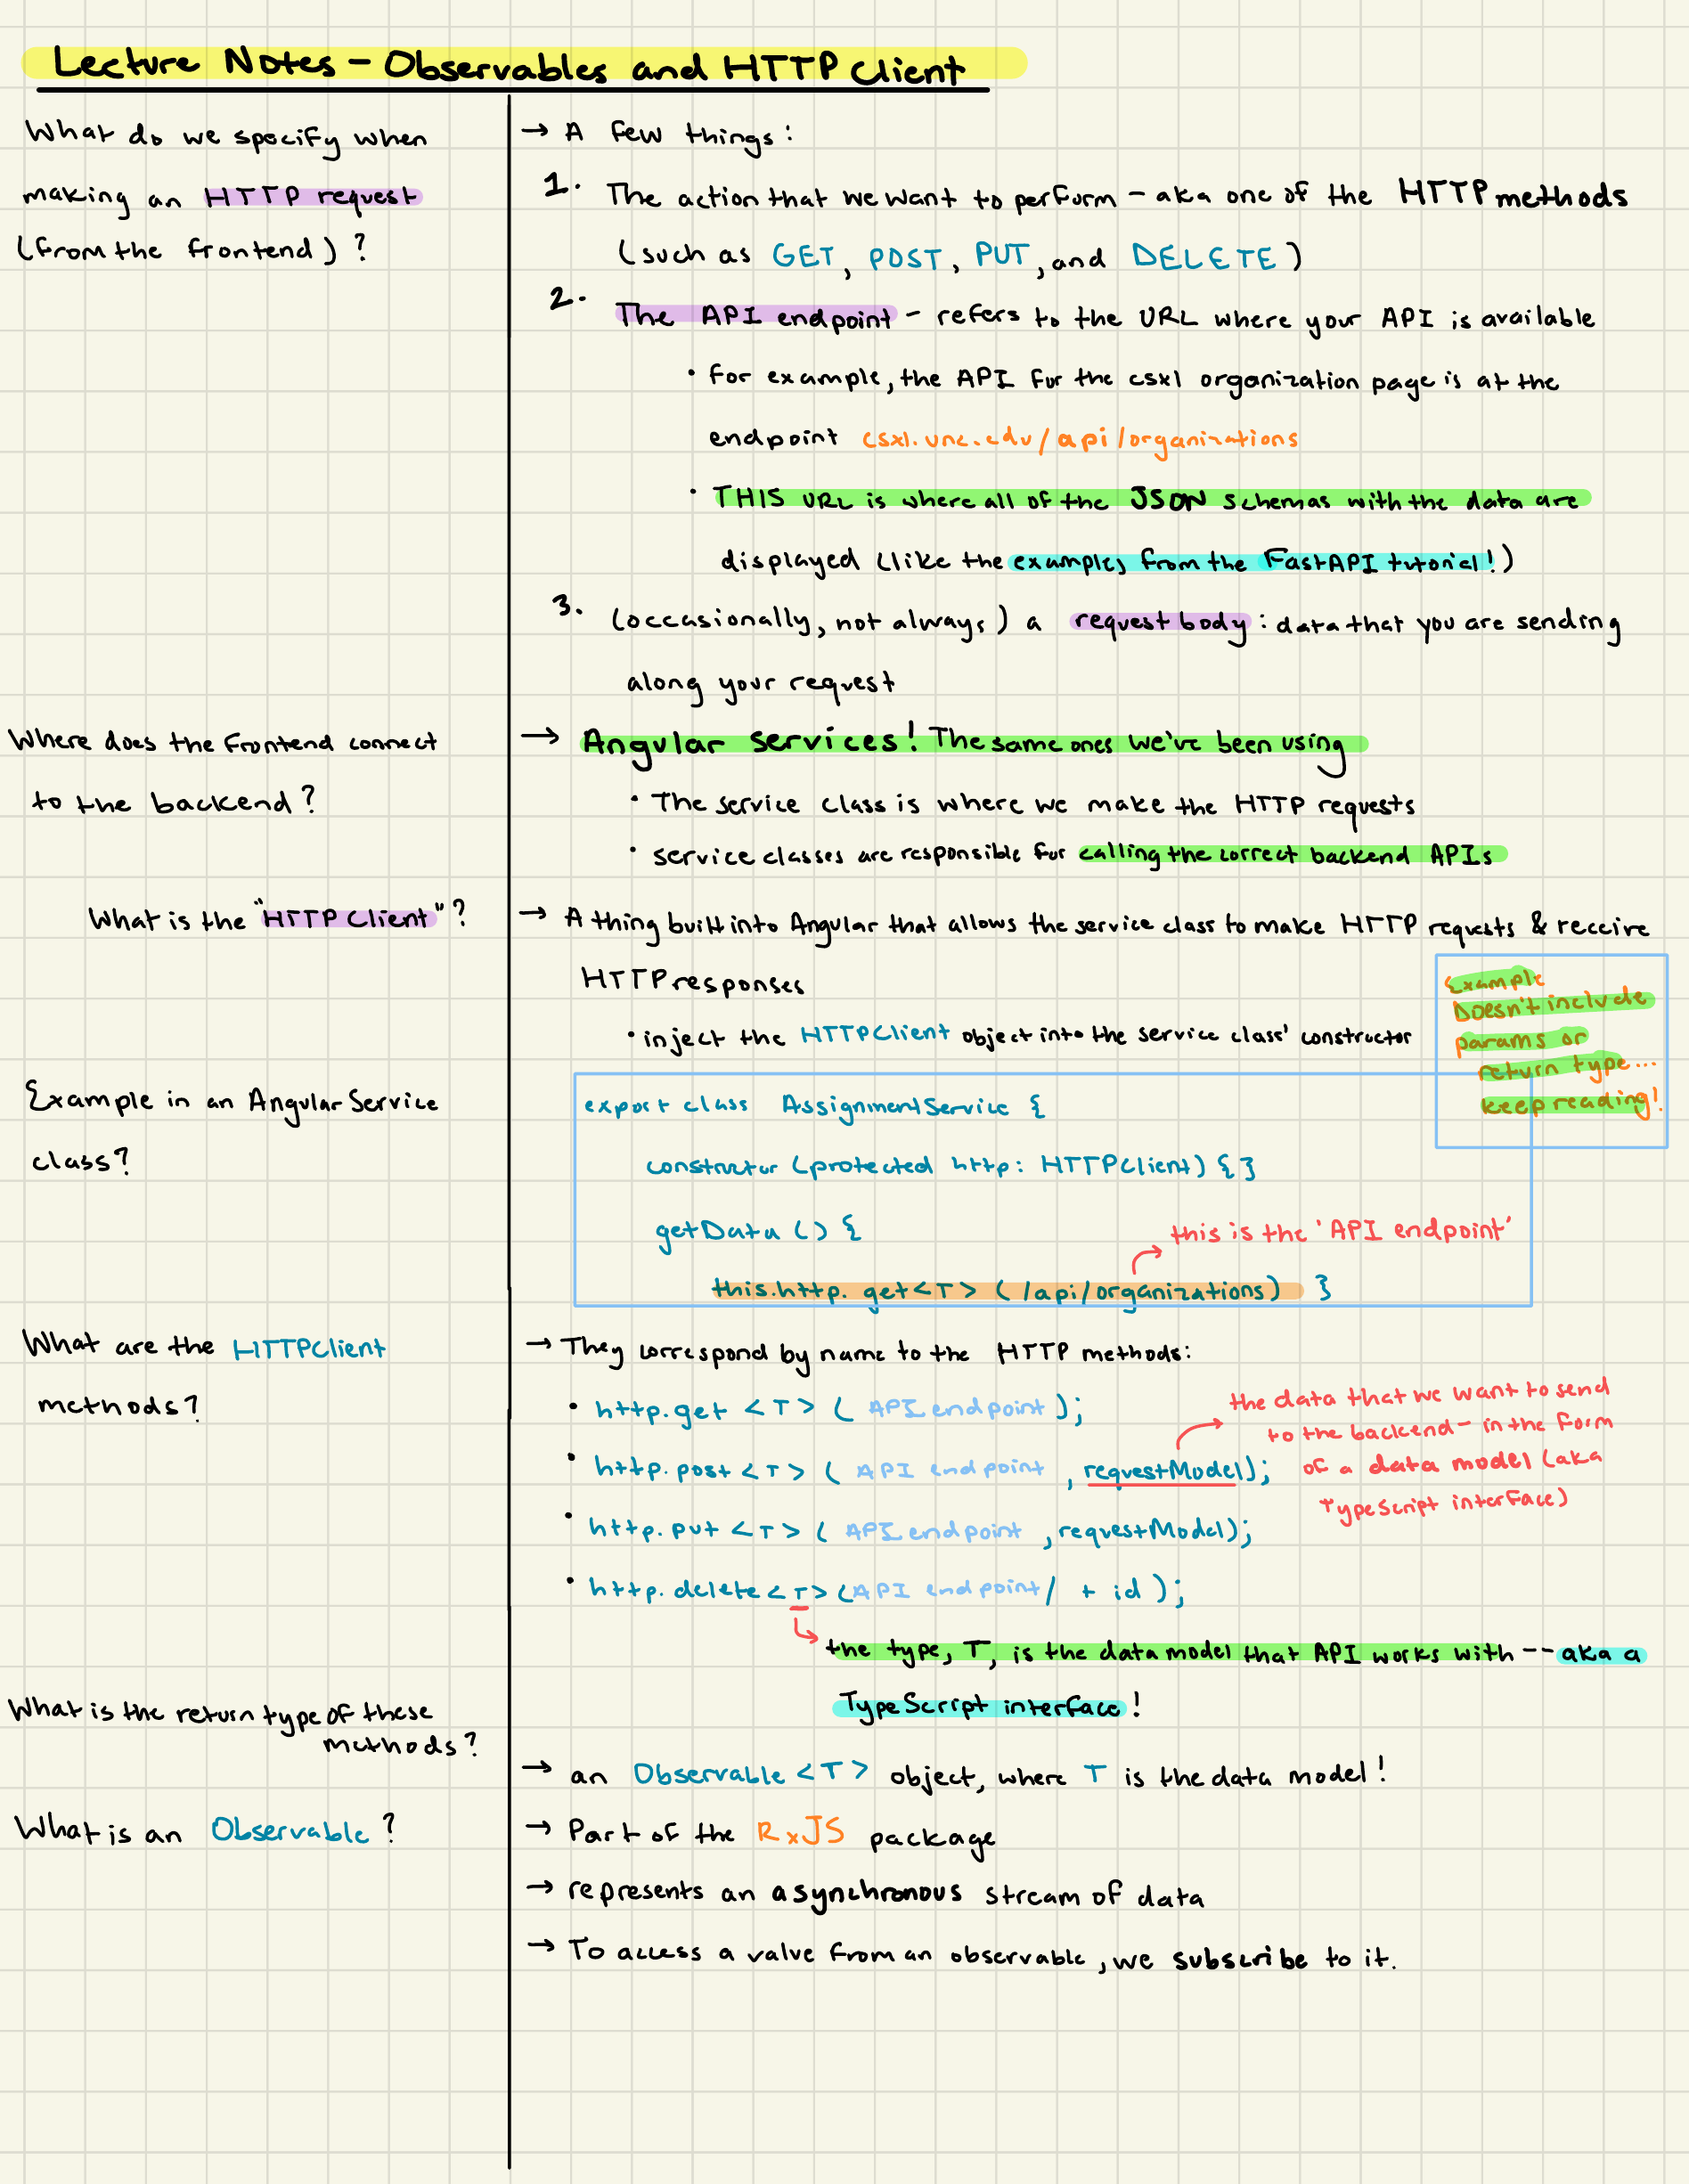 Lecture Notes - Observables and HTTP Client
What do we specify when
making an HTTP request
(from the frontend)?
→ A few things:
1. The action that we want to perform - aka one of the HTTP methods
(such as GET, POST, PUT, and DELETE)
2. The API endpoint - refers to the URL where your API is available
• for example, the API for the csxl organization page is at the
endpoint csxl.unc.edu/api/organizations
• THIS URL is where all of the JSON schemas with the data are
displayed (like the examples from the FastAPI tutorial!)
3. (occasionally, not always) a request body: data that you are sending
along your request
Where does the frontend connect
to the backend?
→ Angular services! The same ones we've been using
• The service class is where we make the HTTP requests
• service classes are responsible for calling the correct backend APIs
What is the "HTTP Client"?
→ A thing built into Angular that allows the service class to make HTTP requests & receive
HTTP responses
• inject the HTTPClient object into the service class' constructor
Example
Doesn't include
params or
return type...
keep reading!
Example in an Angular Service
class?
export class AssignmentService {
constructor (protected http: HTTPClient) { }
getData () {
this is the 'API endpoint'
this.http.get<T> (/api/organizations) }
What are the HTTPClient
methods?
→ They correspond by name to the HTTP methods:
• http.get <T> ( API endpoint );
• http.post <T> ( API endpoint , requestModel);
the data that we want to send
to the backend - in the form
of a data model (aka
TypeScript interface)
• http.put <T> ( API endpoint , requestModel);
• http.delete <T> (API endpoint/ + id );
the type, T, is the data model that API works with -- aka a
TypeScript interface!
What is the return type of these
methods?
→ an Observable <T> object, where T is the data model!
What is an Observable?
→ Part of the RxJS package
→ represents an asynchronous stream of data
→ To access a value from an observable, we subscribe to it.